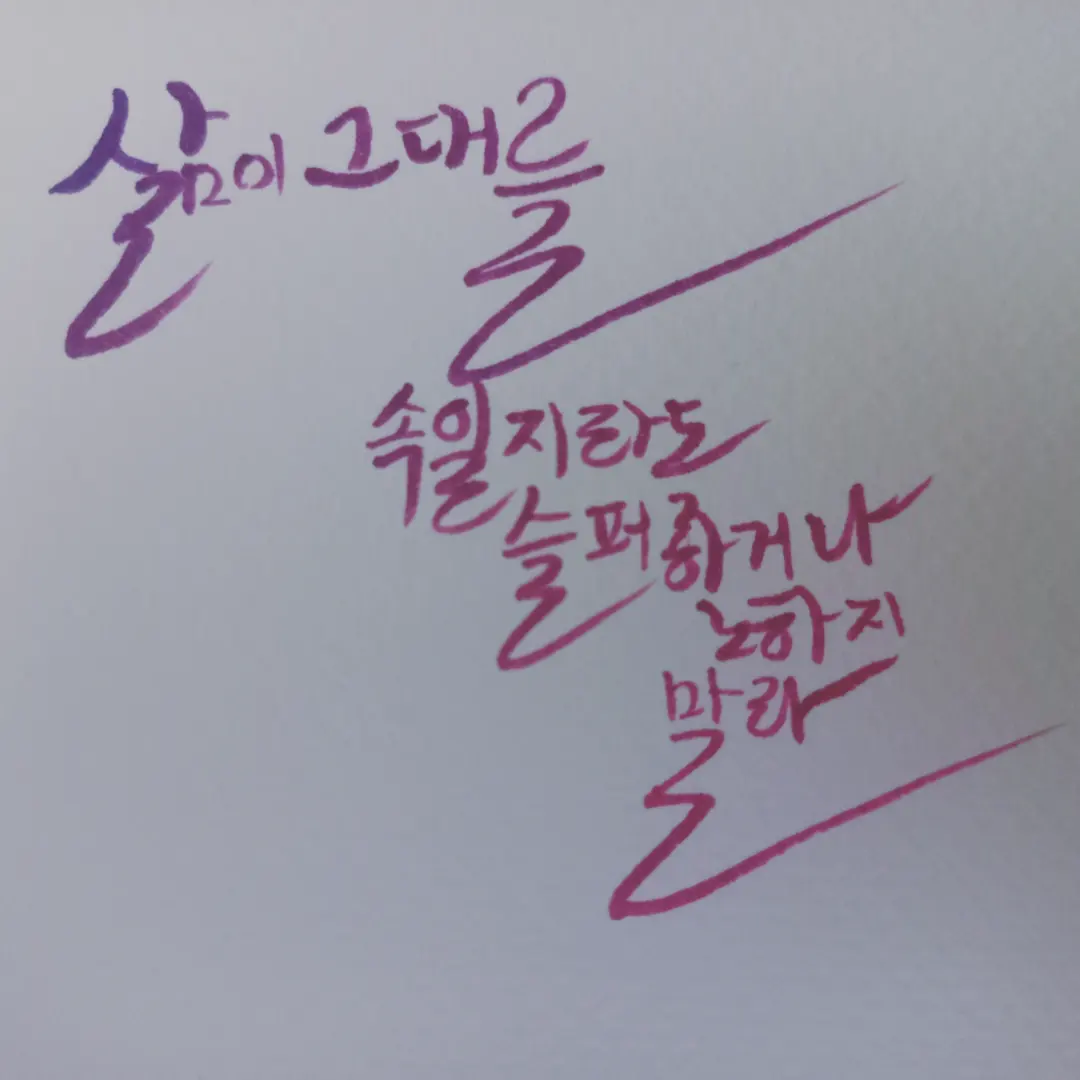 삶이 그대를
속일지라도
슬퍼하거나
노하지
말라